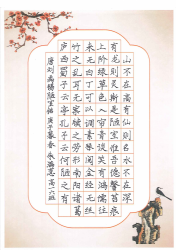 山不在高有仙则名水不在深
有龙则灵斯是陋室惟吾德馨苔痕
上阶绿草色入帘青谈笑有鸿儒往
来无白丁可以调素琴阅金经无丝
竹之乱耳无案牍之劳形南阳诸葛
庐西蜀子云亭孔子云何陋之有
唐刘禹锡陋室铭 庚子暮春